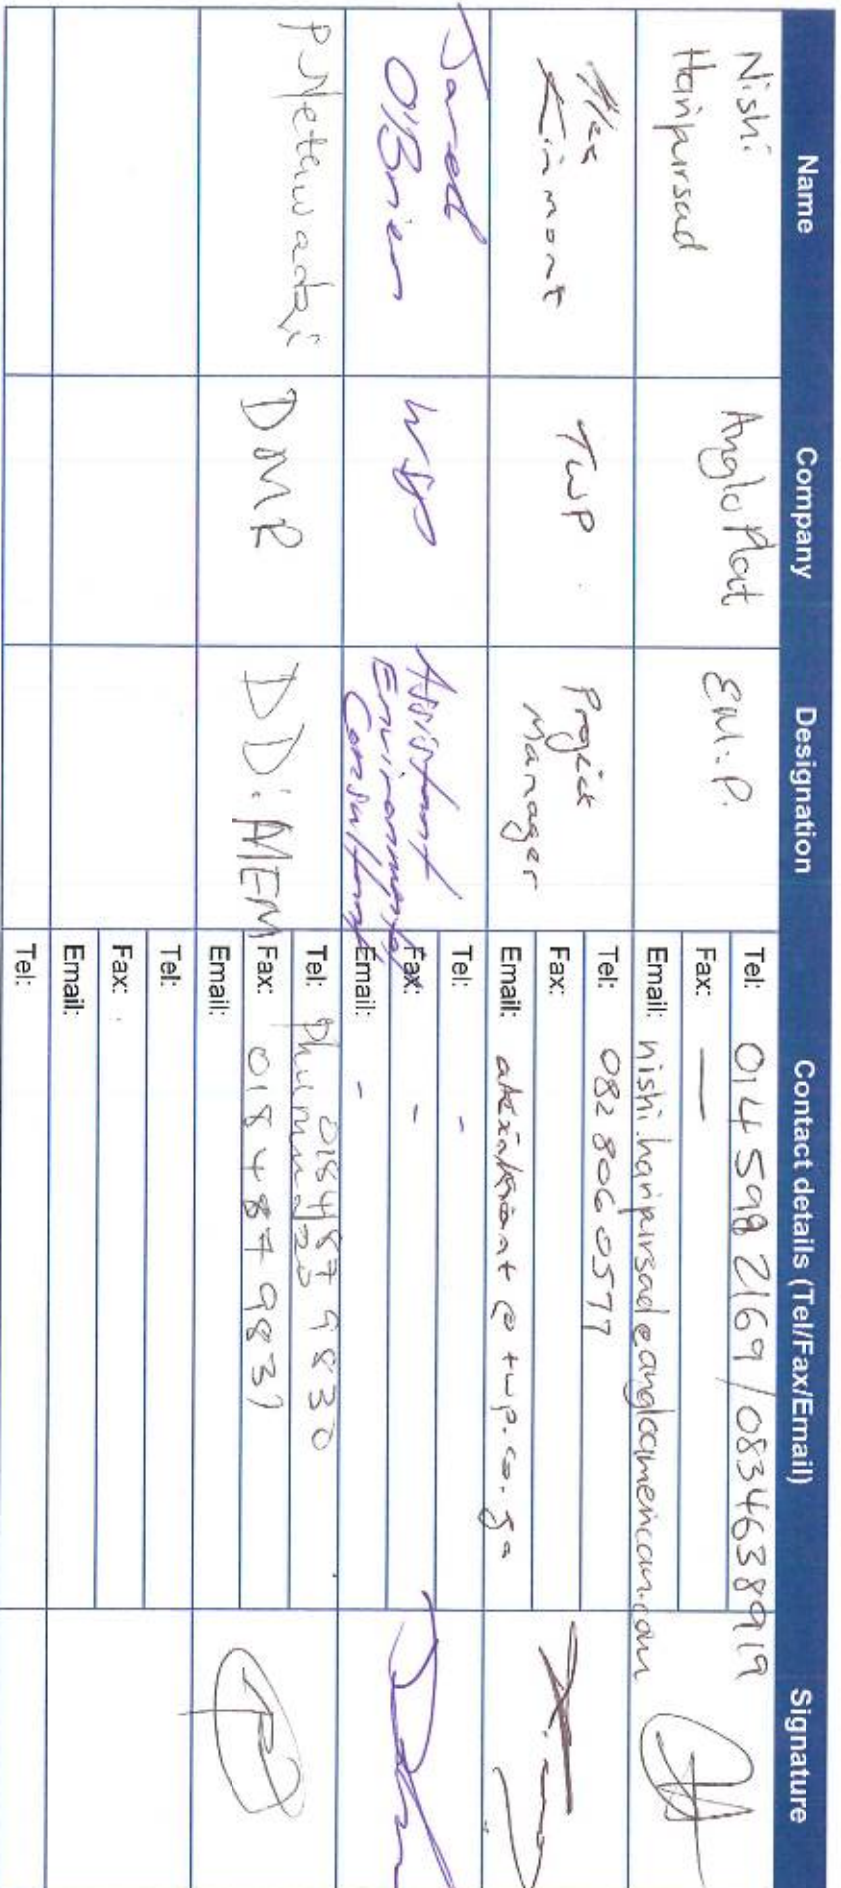 Name Company Designation Contact details (Tel/Fax/Email) Signature
Nishi Haripursad AngloPlat E.M.P. Tel: 014 598 2169 / 0834638919
Fax: —
Email: nishi.haripursad@angloamerican.com
Alex Kinmont TWP Project Manager Tel: 082 806 0577
Fax:
Email: @twp.co.za
Jared O'Brien WSP Assistant Environmental Consultant Tel: -
Fax: -
Email: -
DMR DD: MEM Tel: 018 487 9830
Fax: 018 487 9831
Email:
Tel:
Fax:
Email:
Tel: